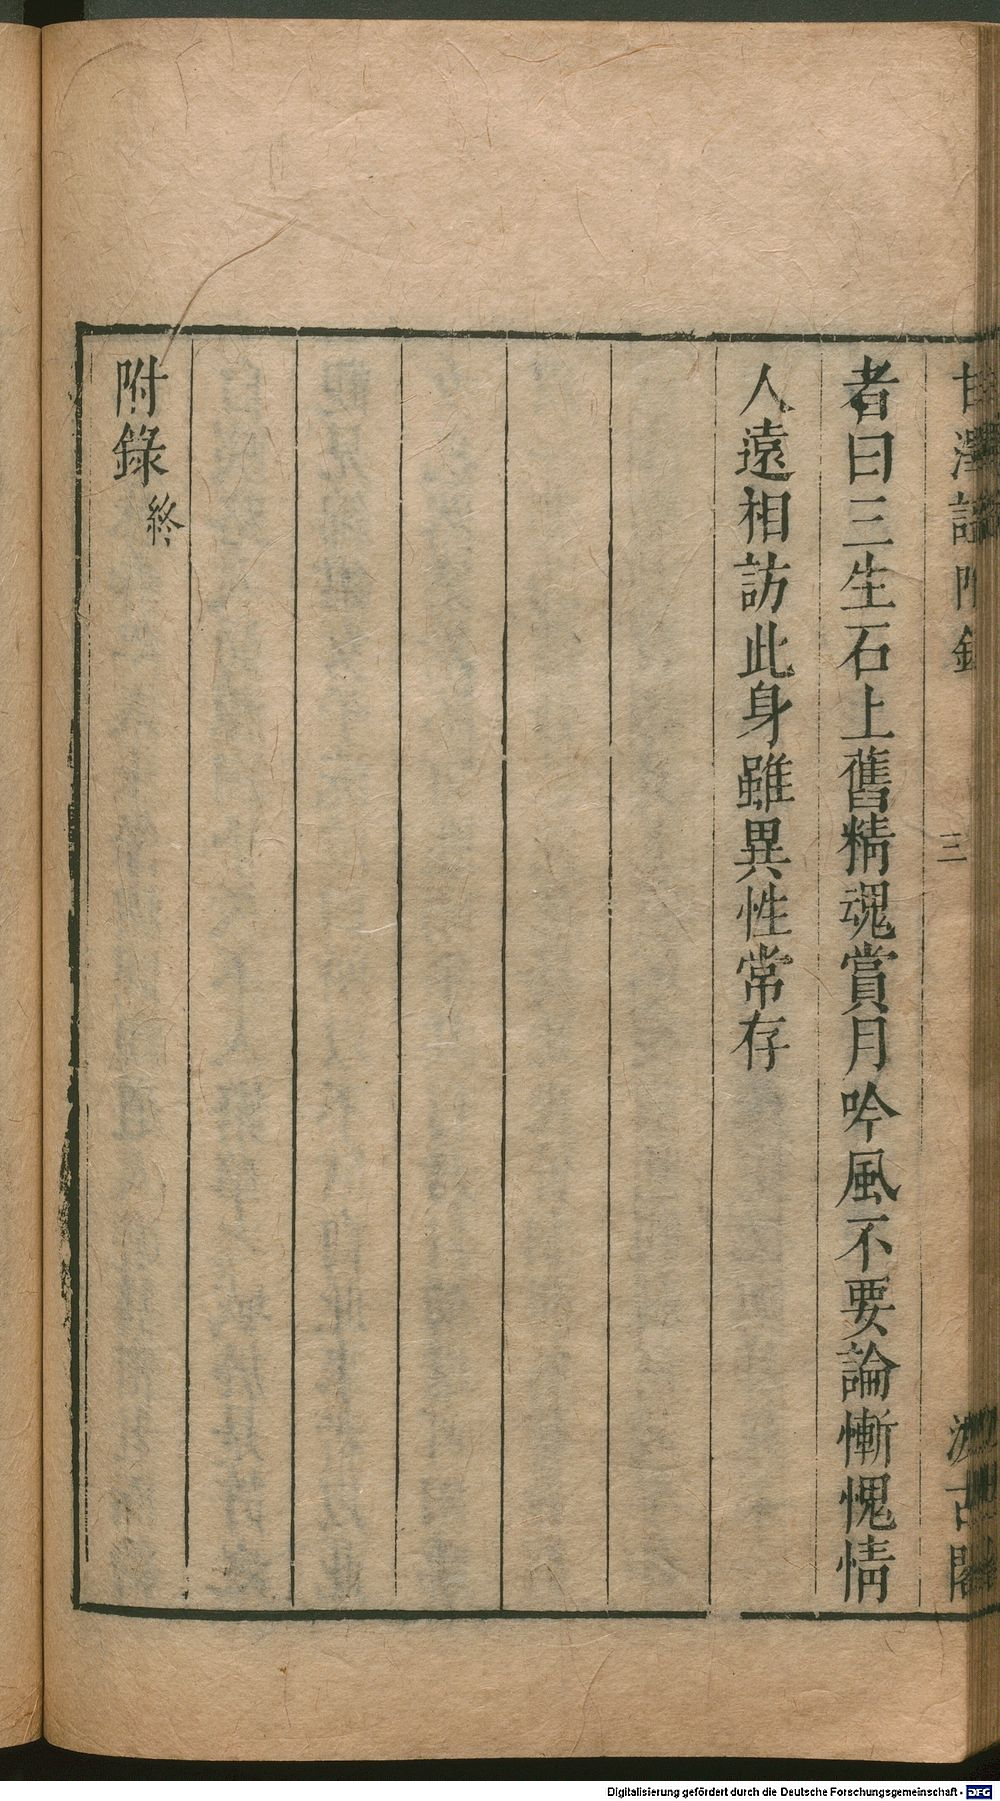 甘澤謠附錄
三
汲古閣
者曰三生石上舊精魂賞月吟風不要論慚愧情
人遠相訪此身雖異性常存
附錄終
Digitalisierung gefördert durch die Deutsche Forschungsgemeinschaft - DFG